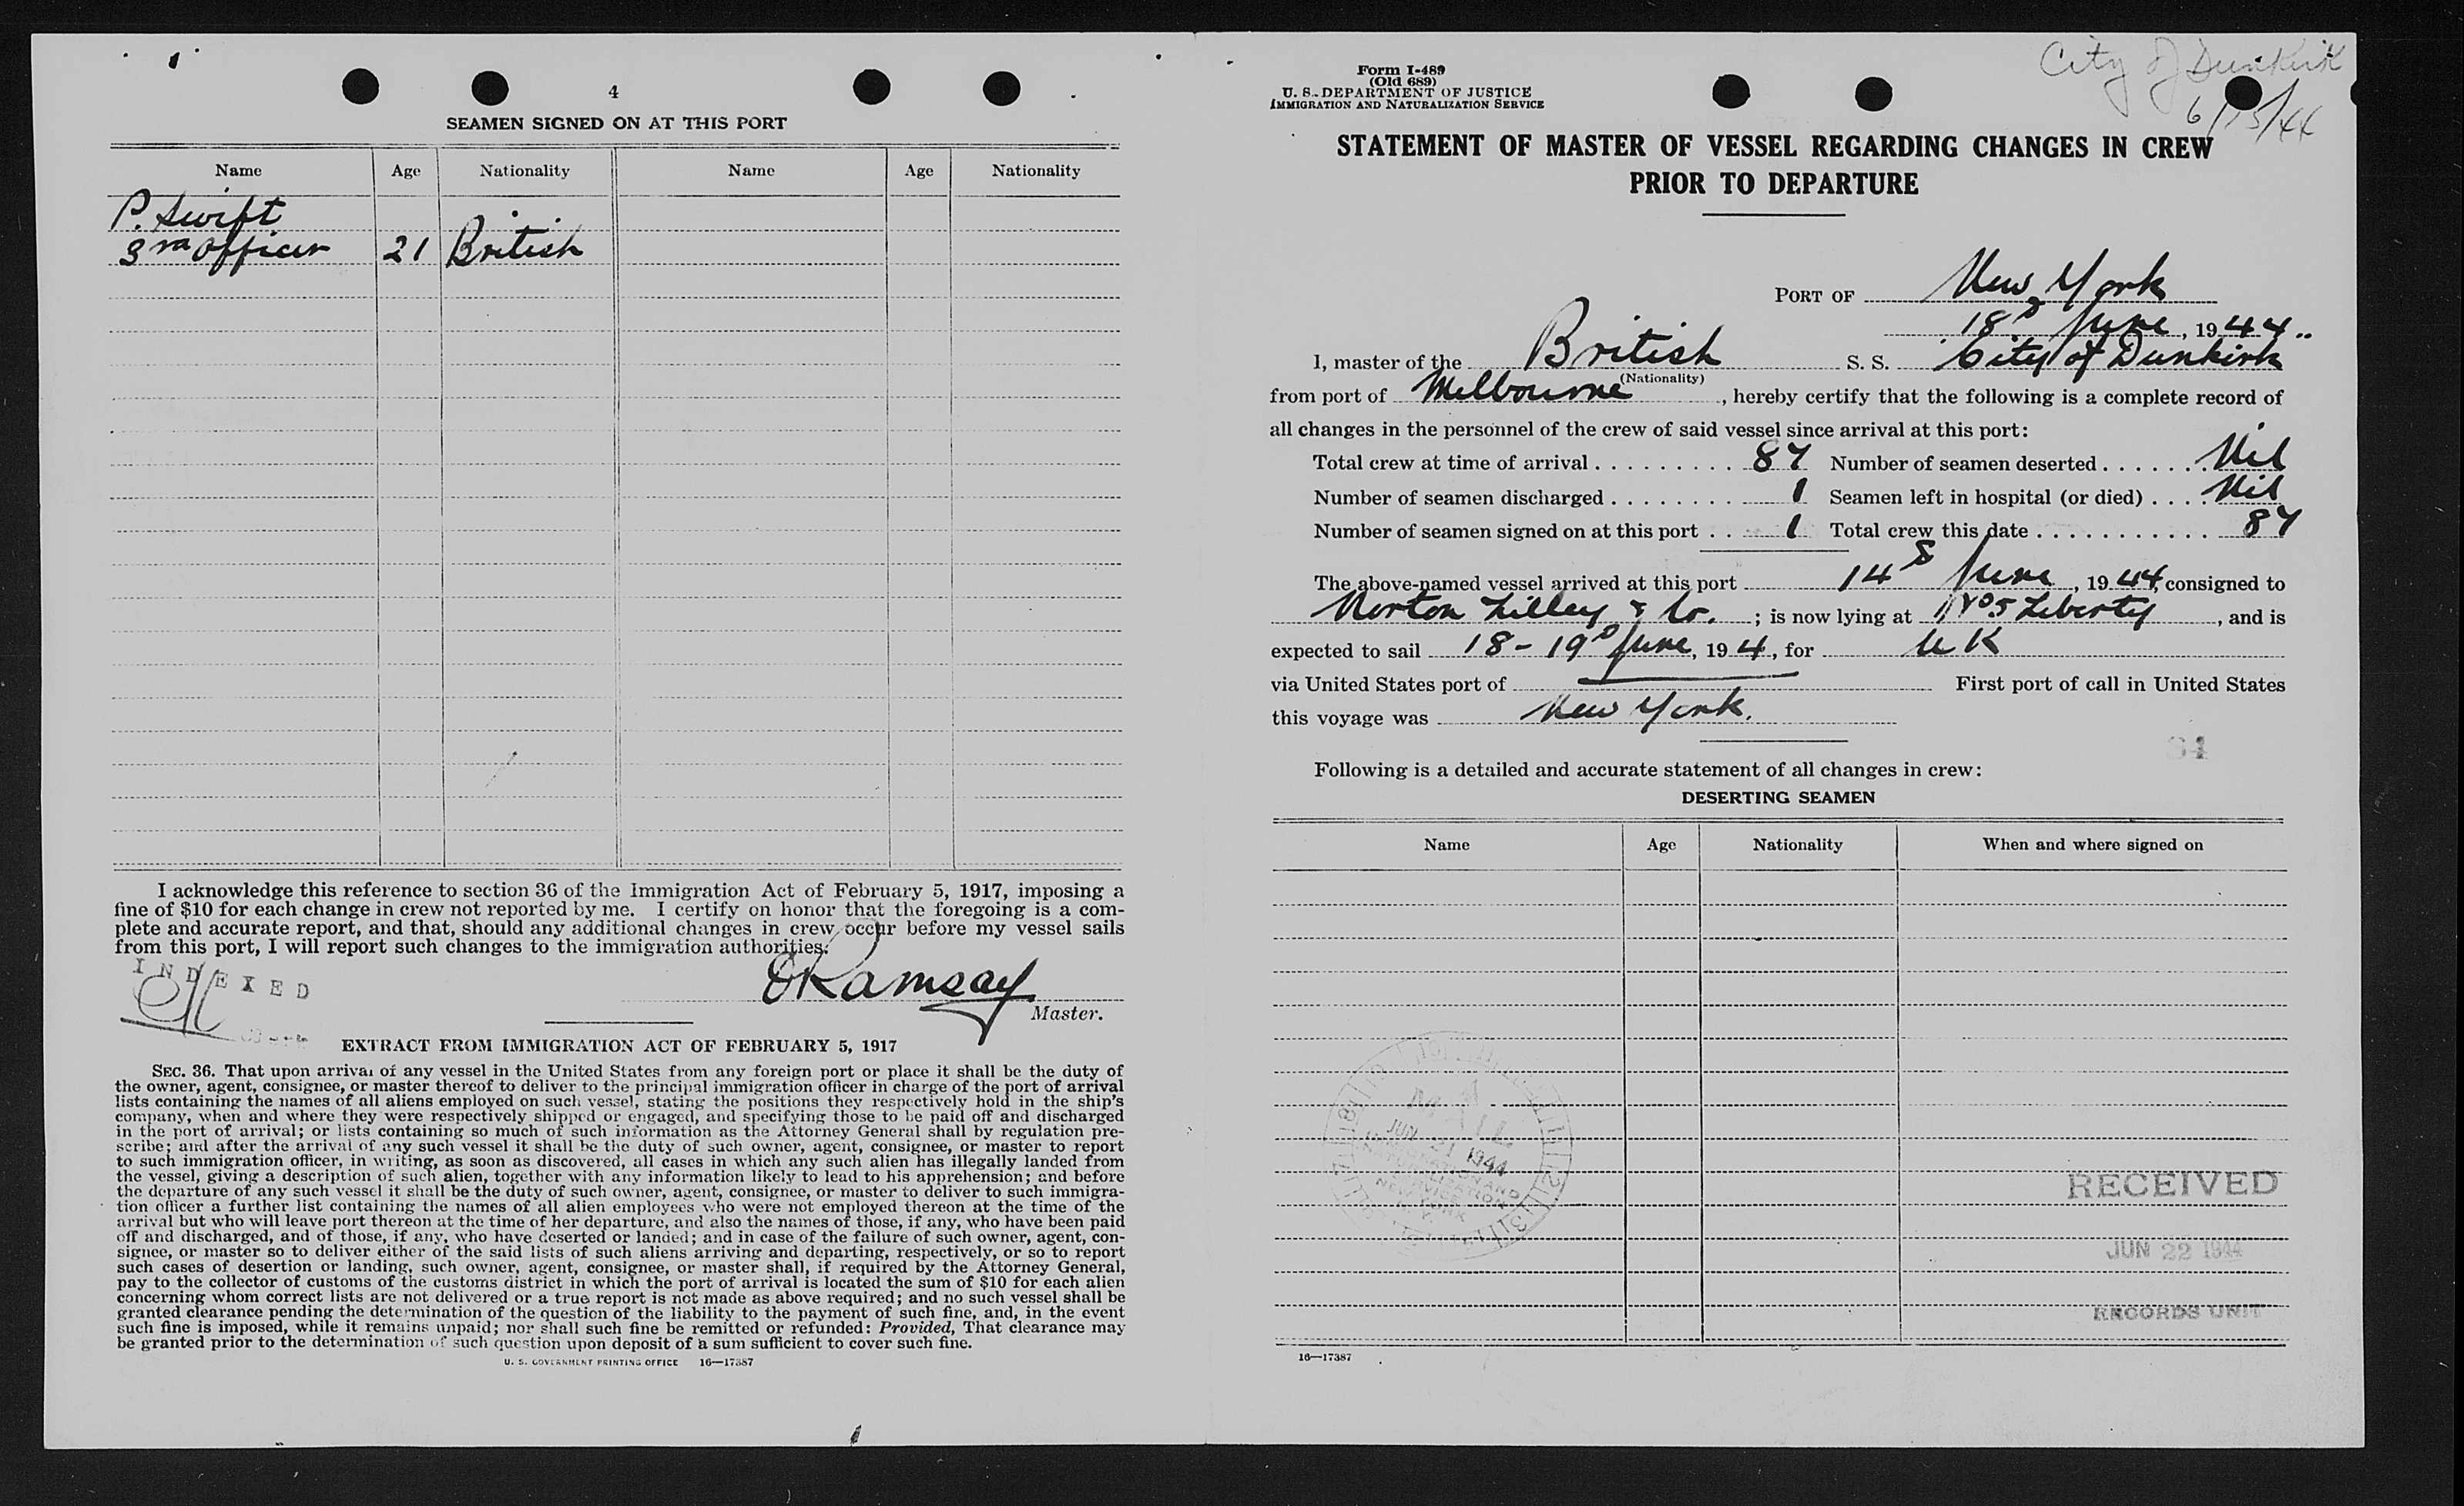 4
SEAMEN SIGNED ON AT THIS PORT
Name Age Nationality Name Age Nationality
P. Swift
3rd Officer 21 British
I acknowledge this reference to section 36 of the Immigration Act of February 5, 1917, imposing a
fine of $10 for each change in crew not reported by me. I certify on honor that the foregoing is a com-
plete and accurate report, and that, should any additional changes in crew occur before my vessel sails
from this port, I will report such changes to the immigration authorities.
INDEXED
Ramsay
Master.
EXTRACT FROM IMMIGRATION ACT OF FEBRUARY 5, 1917
SEC. 36. That upon arrival of any vessel in the United States from any foreign port or place it shall be the duty of
the owner, agent, consignee, or master thereof to deliver to the principal immigration officer in charge of the port of arrival
lists containing the names of all aliens employed on such vessel, stating the positions they respectively hold in the ship's
company, when and where they were respectively shipped or engaged, and specifying those to be paid off and discharged
in the port of arrival; or lists containing so much of such information as the Attorney General shall by regulation pre-
scribe; and after the arrival of any such vessel it shall be the duty of such owner, agent, consignee, or master to report
to such immigration officer, in writing, as soon as discovered, all cases in which any such alien has illegally landed from
the vessel, giving a description of such alien, together with any information likely to lead to his apprehension; and before
the departure of any such vessel it shall be the duty of such owner, agent, consignee, or master to deliver to such immigra-
tion officer a further list containing the names of all alien employees who were not employed thereon at the time of the
arrival but who will leave port thereon at the time of her departure, and also the names of those, if any, who have been paid
off and discharged, and of those, if any, who have deserted or landed; and in case of the failure of such owner, agent, con-
signee, or master so to deliver either of the said lists of such aliens arriving and departing, respectively, or so to report
such cases of desertion or landing, such owner, agent, consignee, or master shall, if required by the Attorney General,
pay to the collector of customs of the customs district in which the port of arrival is located the sum of $10 for each alien
concerning whom correct lists are not delivered or a true report is not made as above required; and no such vessel shall be
granted clearance pending the determination of the question of the liability to the payment of such fine, and, in the event
such fine is imposed, while it remains unpaid; nor shall such fine be remitted or refunded: Provided, That clearance may
be granted prior to the determination of such question upon deposit of a sum sufficient to cover such fine.
U. S. GOVERNMENT PRINTING OFFICE 16—17387
City of Dunkirk
6/15/44
Form I-489
(Old 689)
U. S. DEPARTMENT OF JUSTICE
IMMIGRATION AND NATURALIZATION SERVICE
STATEMENT OF MASTER OF VESSEL REGARDING CHANGES IN CREW
PRIOR TO DEPARTURE
PORT OF New York
18th June, 1944
I, master of the British S. S. City of Dunkirk
(Nationality)
from port of Melbourne, hereby certify that the following is a complete record of
all changes in the personnel of the crew of said vessel since arrival at this port:
Total crew at time of arrival 87 Number of seamen deserted Nil
Number of seamen discharged 1 Seamen left in hospital (or died) Nil
Number of seamen signed on at this port 1 Total crew this date 87
The above-named vessel arrived at this port 14th June, 1944, consigned to
Norton Lilley & Co.; is now lying at Liberty, and is
expected to sail 18-19th June, 194, for UK
via United States port of First port of call in United States
this voyage was New York.
Following is a detailed and accurate statement of all changes in crew:
DESERTING SEAMEN
Name Age Nationality When and where signed on
MAIL
JUN 21 1944
IMMIGRATION AND
NATURALIZATION
SERVICE
NEW YORK
RECEIVED
JUN 22 1944
RECORDS UNIT
16—17387